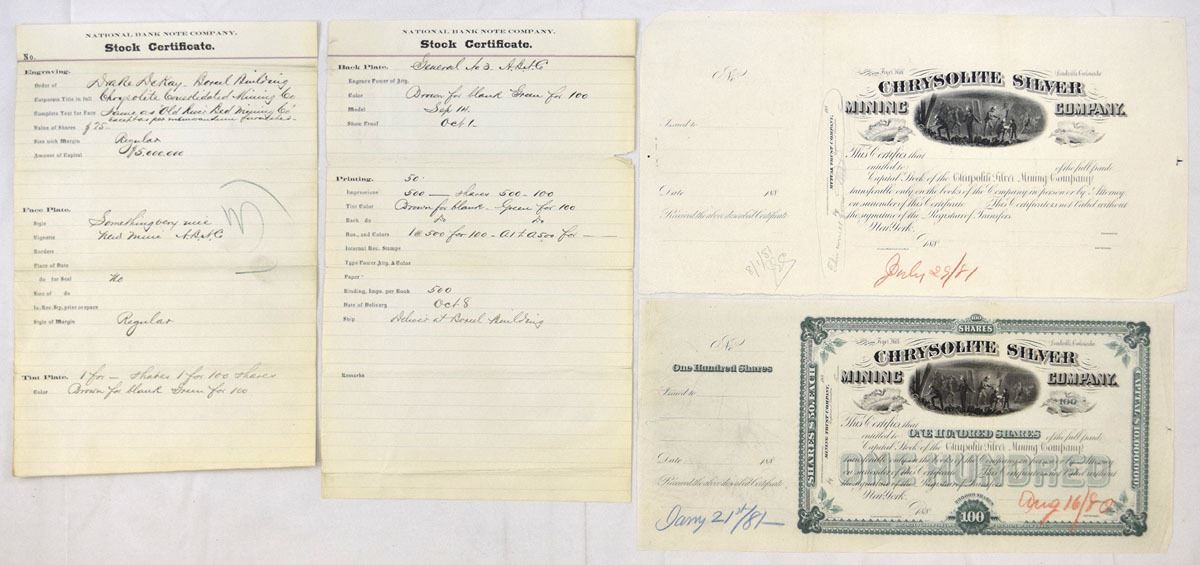 NATIONAL BANK NOTE COMPANY.
Stock Certificate.
No.
Engraving.
Order of Drake DeKay. Boreel Building
Corporate Title in full Chrysolite Consolidated Mining Co
Complete Text for Face Same as Old River Bed Mining Co
except as per memorandum furnished
Value of Shares $25
Size with Margin Regular
Amount of Capital $5,000,000
Face Plate.
Style Something very nice
Vignette New Mine A.B.N.Co
Borders
Place of Date
do for Seal No
Size of do
In. Rev. Stp. print or space
Style of Margin Regular
Tint Plate. 1 for — shares 1 for 100 shares
Color Brown for blank Green for 100
NATIONAL BANK NOTE COMPANY.
Stock Certificate.
Back Plate. General No 3. A.B.N.C
Engrave Power of Atty.
Color Brown for blank Green for 100
Model Sep 14.
Show Proof Oct 1
Printing. 50.
Impressions 500 — shares 500 - 100
Tint Color Brown for blank - Green for 100
Back do do do
Nos. and Colors 1@500 for 100 - A1@A500 for —
Internal Rev. Stamps
Type Power Atty. & Color
Paper
Binding, Imps. per Book 500
Date of Delivery Oct 8
Ship Deliver at Boreel Building
Remarks
No
Issued to
Date 188
Received the above described Certificate
Fryer Hill Leadville Colorado
CHRYSOLITE SILVER
MINING COMPANY.
This Certifies that
entitled to of the full paid
Capital Stock of the Chrysolite Silver Mining Company
transferable only on the books of the Company in person or by Attorney
on surrender of this Certificate This Certificate is not Valid without
the signature of the Registrar of Transfers.
New York, 188
July 29/81
No
One Hundred Shares
Issued to
Date 188
Received the above described Certificate
Jany 21st/81
100
SHARES
Fryer Hill Leadville Colorado
CHRYSOLITE SILVER
MINING COMPANY.
100
SHARES $50. EACH
CAPITAL $10,000,000.
This Certifies that
entitled to ONE HUNDRED SHARES of the full paid
Capital Stock of the Chrysolite Silver Mining Company
transferable only on the books of the Company in person or by Attorney
ONE HUNDRED
on surrender of this Certificate This Certificate is not Valid without
the signature of the Registrar of Transfers.
New York, 188
200,000 SHARES
100
Aug 16/80